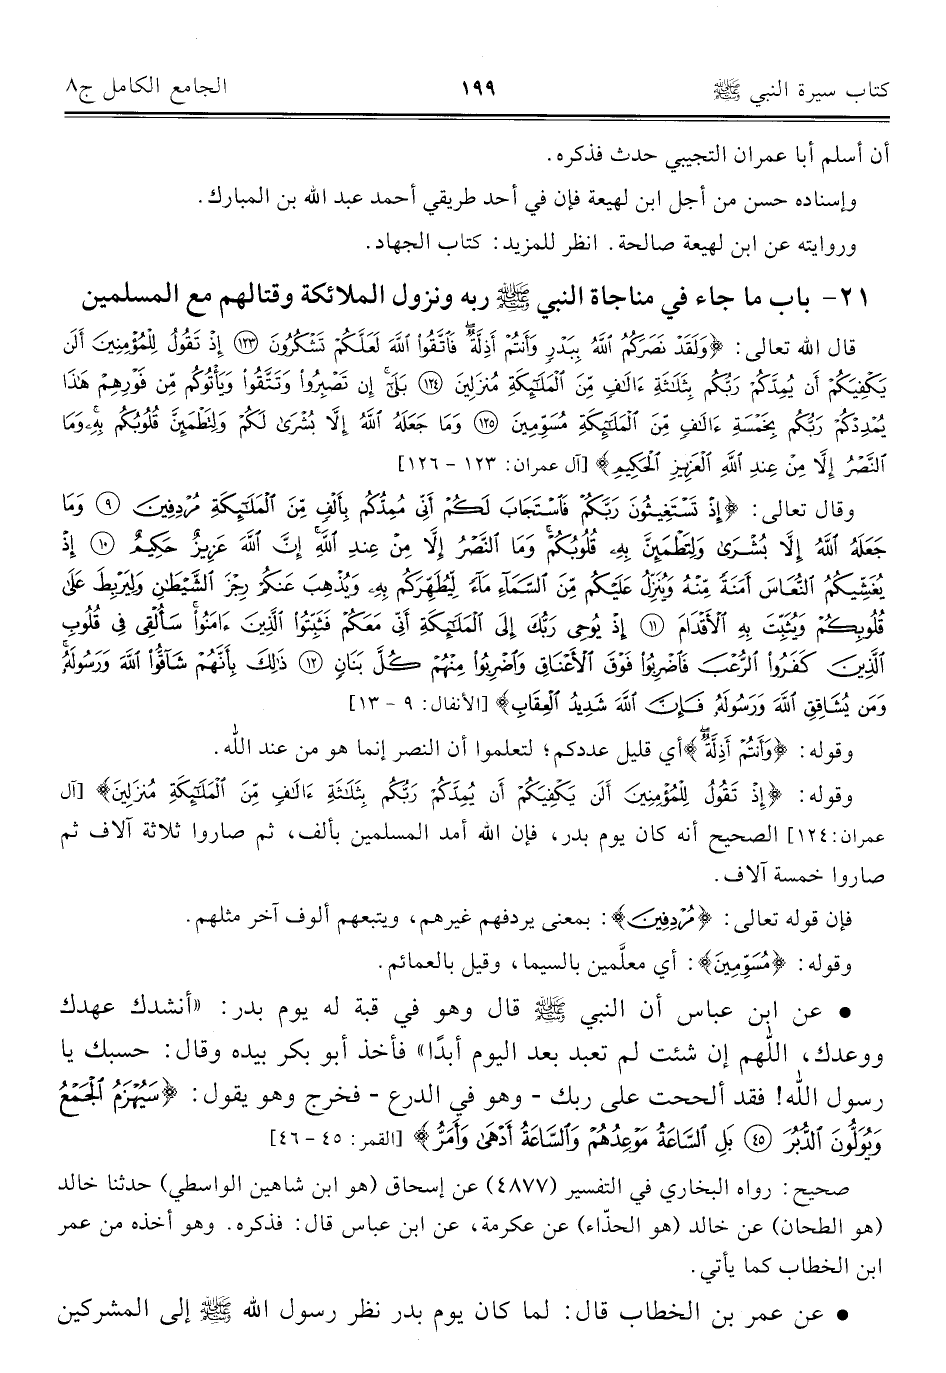 كتاب سيرة النبي ﷺ ١٩٩ الجامع الكامل ج٨
أن أسلم أبا عمران التجيبي حدث فذكره.
وإسناده حسن من أجل ابن لهيعة فإن في أحد طريقي أحمد عبد الله بن المبارك.
وروايته عن ابن لهيعة صالحة. انظر للمزيد: كتاب الجهاد.
٢١- باب ما جاء في مناجاة النبي ﷺ ربه ونزول الملائكة وقتالهم مع المسلمين
قال الله تعالى: ﴿وَلَقَدْ نَصَرَكُمُ اللَّهُ بِبَدْرٍ وَأَنتُمْ أَذِلَّةٌ ۖ فَاتَّقُوا اللَّهَ لَعَلَّكُمْ تَشْكُرُونَ ١٢٣ إِذْ تَقُولُ لِلْمُؤْمِنِينَ أَلَن
يَكْفِيَكُمْ أَن يُمِدَّكُمْ رَبُّكُم بِثَلَاثَةِ ءَالَافٍ مِّنَ الْمَلَائِكَةِ مُنزَلِينَ ١٢٤ بَلَىٰ ۚ إِن تَصْبِرُوا وَتَتَّقُوا وَيَأْتُوكُم مِّن فَوْرِهِمْ هَٰذَا
يُمْدِدْكُمْ رَبُّكُم بِخَمْسَةِ ءَالَافٍ مِّنَ الْمَلَائِكَةِ مُسَوِّمِينَ ١٢٥ وَمَا جَعَلَهُ اللَّهُ إِلَّا بُشْرَىٰ لَكُمْ وَلِتَطْمَئِنَّ قُلُوبُكُم بِهِ ۗ وَمَا
النَّصْرُ إِلَّا مِنْ عِندِ اللَّهِ الْعَزِيزِ الْحَكِيمِ﴾ [آل عمران: ١٢٣ - ١٢٦]
وقال تعالى: ﴿إِذْ تَسْتَغِيثُونَ رَبَّكُمْ فَاسْتَجَابَ لَكُمْ أَنِّي مُمِدُّكُم بِأَلْفٍ مِّنَ الْمَلَائِكَةِ مُرْدِفِينَ ٩ وَمَا
جَعَلَهُ اللَّهُ إِلَّا بُشْرَىٰ وَلِتَطْمَئِنَّ بِهِ قُلُوبُكُمْ ۚ وَمَا النَّصْرُ إِلَّا مِنْ عِندِ اللَّهِ ۚ إِنَّ اللَّهَ عَزِيزٌ حَكِيمٌ ١٠ إِذْ
يُغَشِّيكُمُ النُّعَاسَ أَمَنَةً مِّنْهُ وَيُنَزِّلُ عَلَيْكُم مِّنَ السَّمَاءِ مَاءً لِّيُطَهِّرَكُم بِهِ وَيُذْهِبَ عَنكُمْ رِجْزَ الشَّيْطَانِ وَلِيَرْبِطَ عَلَىٰ
قُلُوبِكُمْ وَيُثَبِّتَ بِهِ الْأَقْدَامَ ١١ إِذْ يُوحِي رَبُّكَ إِلَى الْمَلَائِكَةِ أَنِّي مَعَكُمْ فَثَبِّتُوا الَّذِينَ ءَامَنُوا ۚ سَأُلْقِي فِي قُلُوبِ
الَّذِينَ كَفَرُوا الرُّعْبَ فَاضْرِبُوا فَوْقَ الْأَعْنَاقِ وَاضْرِبُوا مِنْهُمْ كُلَّ بَنَانٍ ١٢ ذَٰلِكَ بِأَنَّهُمْ شَاقُّوا اللَّهَ وَرَسُولَهُ ۚ
وَمَن يُشَاقِقِ اللَّهَ وَرَسُولَهُ فَإِنَّ اللَّهَ شَدِيدُ الْعِقَابِ﴾ [الأنفال: ٩ - ١٣]
وقوله: ﴿وَأَنتُمْ أَذِلَّةٌ ۖ﴾أي قليل عددكم؛ لتعلموا أن النصر إنما هو من عند الله.
وقوله: ﴿إِذْ تَقُولُ لِلْمُؤْمِنِينَ أَلَن يَكْفِيَكُمْ أَن يُمِدَّكُمْ رَبُّكُم بِثَلَاثَةِ ءَالَافٍ مِّنَ الْمَلَائِكَةِ مُنزَلِينَ﴾ [آل
عمران:١٢٤] الصحيح أنه كان يوم بدر، فإن الله أمد المسلمين بألف، ثم صاروا ثلاثة آلاف ثم
صاروا خمسة آلاف.
فإن قوله تعالى: ﴿مُرْدِفِينَ﴾: بمعنى يردفهم غيرهم، ويتبعهم ألوف آخر مثلهم.
وقوله: ﴿مُسَوِّمِينَ﴾: أي معلَّمين بالسيما، وقيل بالعمائم.
• عن ابن عباس أن النبي ﷺ قال وهو في قبة له يوم بدر: «أنشدك عهدك
ووعدك، اللّهم إن شئت لم تعبد بعد اليوم أبدًا» فأخذ أبو بكر بيده وقال: حسبك يا
رسول الله! فقد ألححت على ربك - وهو في الدرع - فخرج وهو يقول: ﴿سَيُهْزَمُ الْجَمْعُ
وَيُوَلُّونَ الدُّبُرَ ٤٥ بَلِ السَّاعَةُ مَوْعِدُهُمْ وَالسَّاعَةُ أَدْهَىٰ وَأَمَرُّ﴾ [القمر: ٤٥ - ٤٦]
صحيح: رواه البخاري في التفسير (٤٨٧٧) عن إسحاق (هو ابن شاهين الواسطي) حدثنا خالد
(هو الطحان) عن خالد (هو الحذّاء) عن عكرمة، عن ابن عباس قال: فذكره. وهو أخذه من عمر
ابن الخطاب كما يأتي.
• عن عمر بن الخطاب قال: لما كان يوم بدر نظر رسول الله ﷺ إلى المشركين